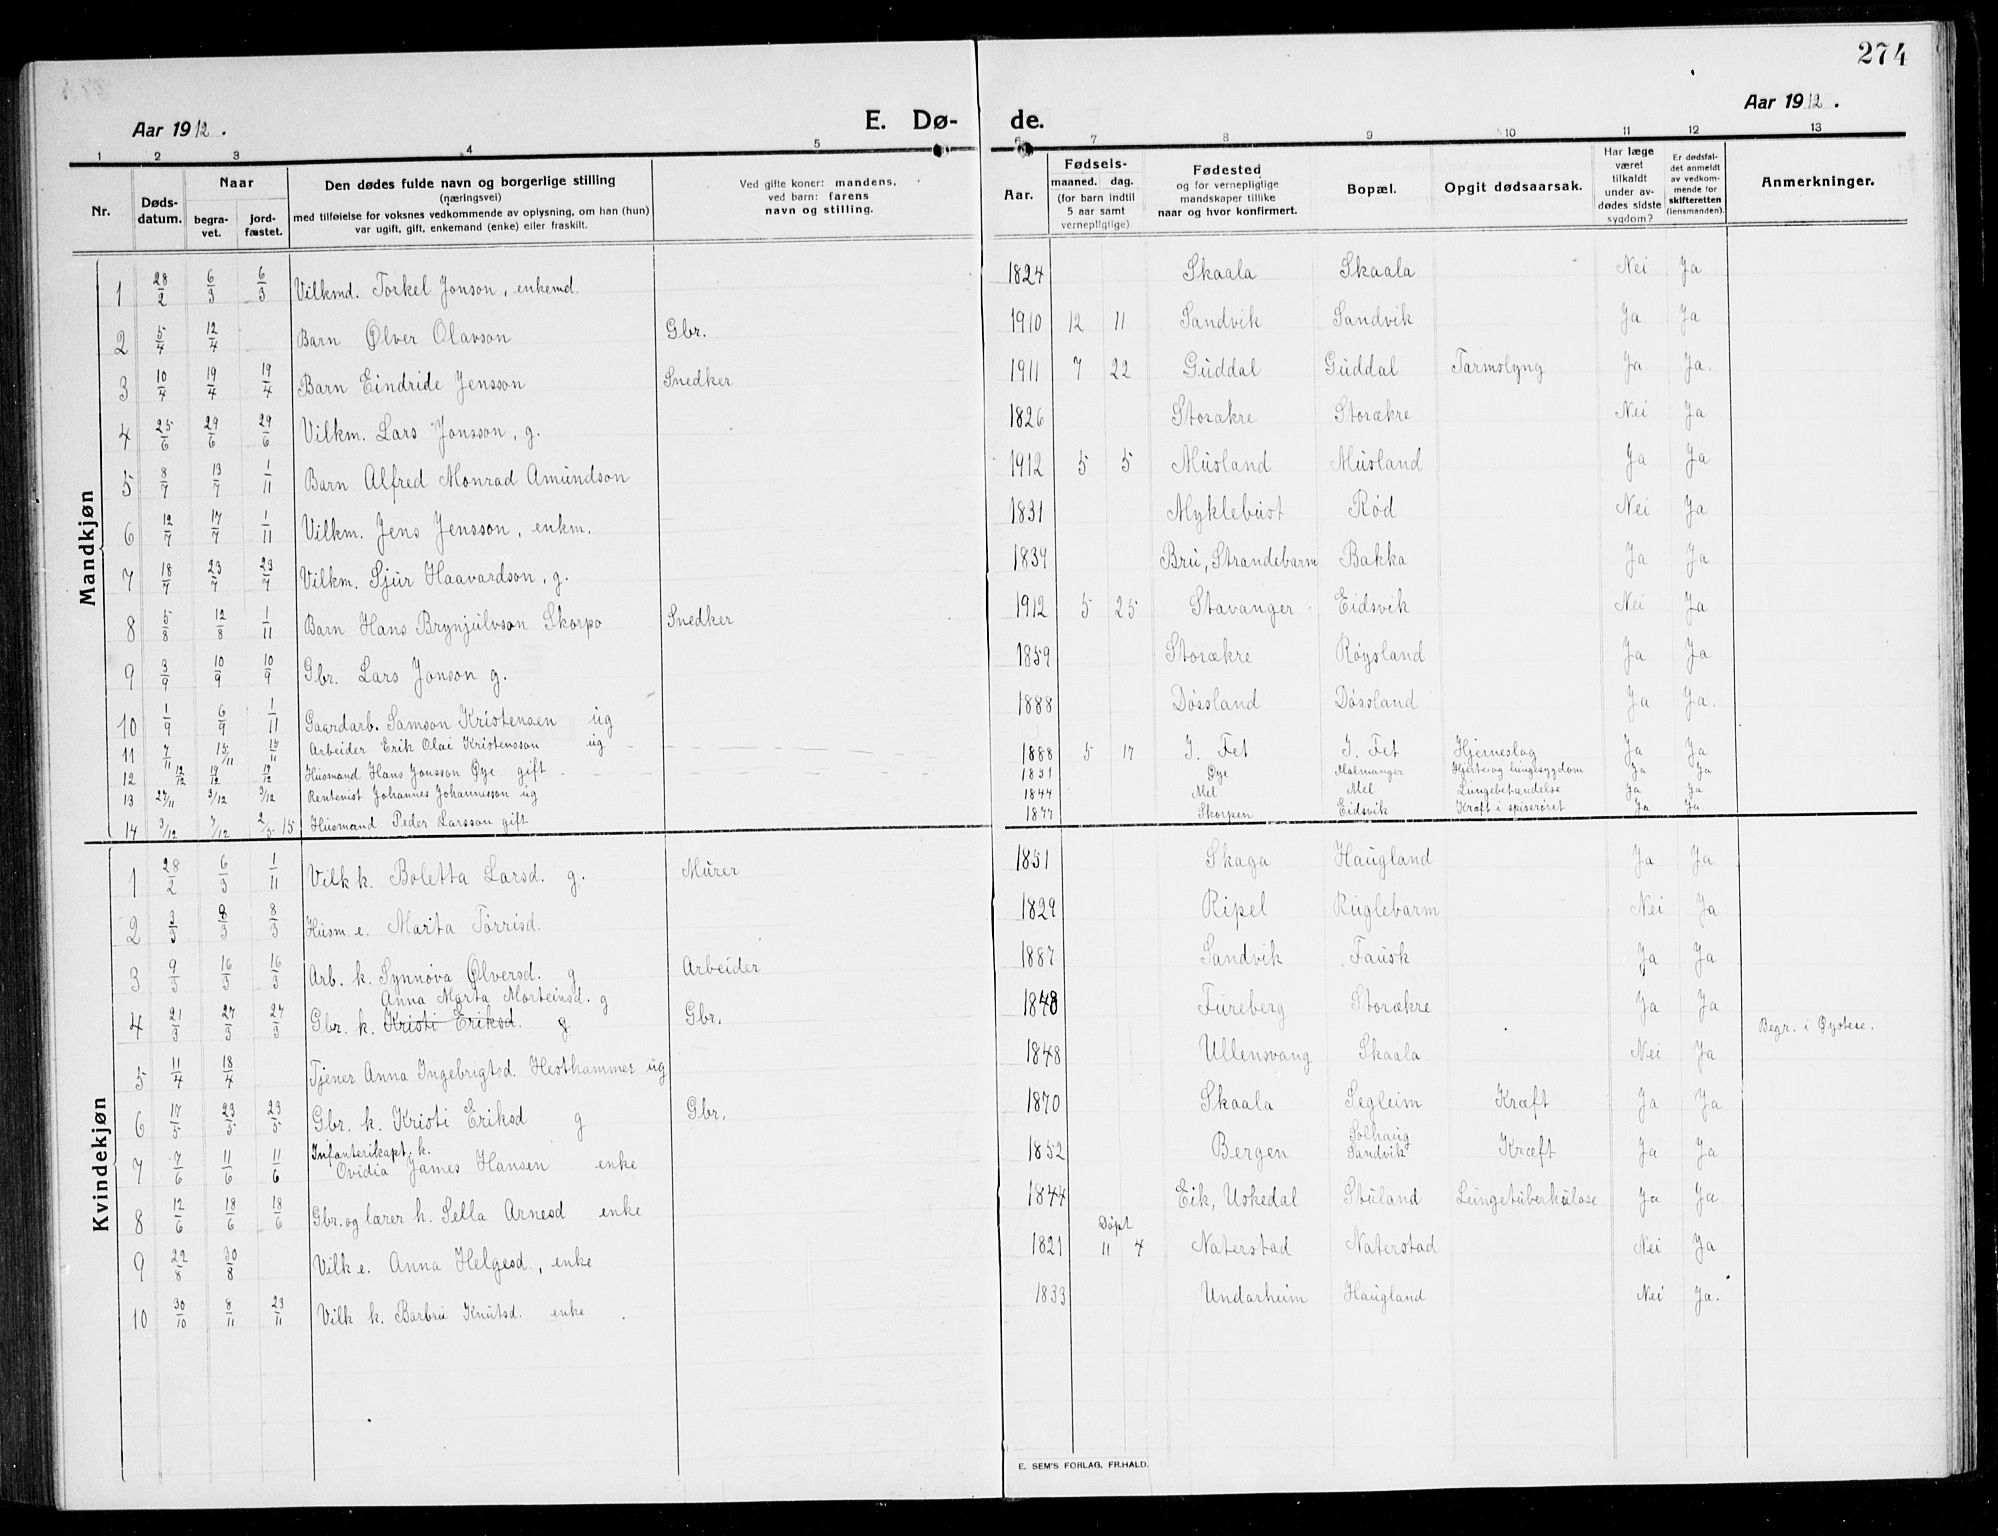 274
Aar 1912. E. Dø- de. Aar 1912.
1 2 3 4 5 6 7 8 9 10 11 12 13
Nr. Døds-datum. Naar begra-vet. jord-fæstet. Den dødes fulde navn og borgerlige stilling (næringsvei) med tilføielse for voksnes vedkommende av oplysning, om han (hun) var ugift, gift, enkemand (enke) eller fraskilt. Ved gifte koner: mandens, ved barn: farens navn og stilling. Aar. Fødsels- maaned. dag. (for barn indtil 5 aar samt vernepligtige) Fødested og for vernepligtige mandskaper tillike naar og hvor konfirmert. Bopæl. Opgit dødsaarsak. Har læge været tilkaldt under av-dødes sidste sygdom? Er dødsfal-det anmeldt av vedkom-mende for skifteretten (lensmanden). Anmerkninger.
Mandkjøn
1 28/2 6/3 6/3 Vilksmd. Torkel Jonson, enkemd. 1824 Skaala Skaala Nei Ja
2 5/4 12/4 Barn Ølver Olavson Gbr. 1910 12 11 Sandvik Sandvik Ja Ja
3 10/4 19/4 19/4 Barn Eindride Jensson Snedker 1911 7 22 Guddal Guddal Tarmslyng Ja Ja.
4 25/6 29/6 29/6 Vilkm. Lars Jonsson, g. 1826 Storækre Storækre Nei Ja
5 8/7 13/7 1/11 Barn Alfred Monrad Amundson 1912 5 5 Musland Musland Ja Ja
6 12/7 17/7 1/11 Vilkm. Jens Jensson, enkm. 1831 Myklebust Rød Nei Ja
7 18/7 23/7 23/7 Vilkm. Sjur Haavardson, g. 1839 Bru, Strandebarm Bakka Ja Ja
8 5/8 12/8 1/11 Barn Hans Brynjulvson Skorpo Snedker 1912 5 25 Stavanger Eidsvik Nei Ja
9 3/9 10/9 10/9 Gbr. Lars Jonson g. 1859 Storækre Røysland Ja Ja
10 1/9 6/9 1/11 Gaardarb. Samson Kristensen ug 1888 Døssland Døssland Ja Ja.
11 7/11 15/11 15/11 Arbeider Erik Olai Kristensson ug 1888 5 17 I. Fet I. Fet Hjerneslag Ja Ja
12 12/12 19/12 19/12 Husmand Hans Jonsson Øye gift 1831 Øye Malmanger Hjerte og lungesygdom Ja Ja
13 27/11 3/12 3/12 Rentenist Johannes Johannesson ug 1844 Mel Mel Lungebetændelse Ja Ja
14 3/12 7/12 2/5 15 Husmand Peder Larsson gift 1877 Skorpen Eidsvik Kræft i spiserøret Ja Ja
Kvindekjøn
1 28/2 6/3 1/11 Vilk k. Boletta Larsd. g. Murer 1851 Skaga Haugland Ja Ja
2 3/3 8/3 8/3 Husm e. Marta Torrisd. 1829 Ripel Ruglebarm Nei Ja
3 9/3 16/3 16/3 Arb. k. Synnøva Ølversd. g Arbeider 1887 Sandvik Fausk Ja Ja
Anna Marta Morteinsd. g
4 21/3 27/3 27/3 Gbr. k. Kristi Eriksd. g Gbr. 1848 Fureberg Storækre Ja Ja
5 11/4 18/4 Tjener Anna Ingebrigtsd. Hesthammer ug 1848 Ullensvang Skaala Nei Ja Begr. i Øystese.
6 17/5 23/5 23/5 Gbr. k. Kristi Eriksd g Gbr. 1870 Skaala Segleim Kræft Ja Ja
Infanterikapt. k. Solhaug
7 7/6 11/6 11/6 Ovidia James Hansen enke 1852 Bergen Sandvik Kræft Ja Ja
8 12/6 18/6 18/6 Gbr. og lærer k. Sella Arnesd enke 1844 Eik, Uskedal Stuland Lungetuberkulose Ja Ja.
Døpt
9 22/8 30/8 Vilk e. Anna Helgesd., enke 1821 11 4 Naterstad Naterstad Nei Ja
10 30/10 8/11 23/11 Vilk k. Barbru Knutsd. enke 1833 Undarheim Haugland Nei Ja.
E. SEM'S FORLAG, FR.HALD.